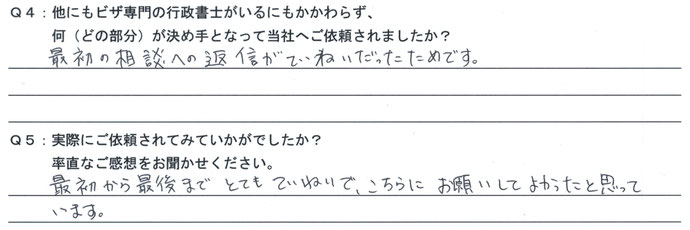 Ｑ４：他にもビザ専門の行政書士がいるにもかかわらず、
何（どの部分）が決め手となって当社へご依頼されましたか？
最初の相談への返信がていねいだったためです。
Ｑ５：実際にご依頼されてみていかがでしたか？
率直なご感想をお聞かせください。
最初から最後まで とても ていねいで、こちらに お願いして よかったと思って
います。